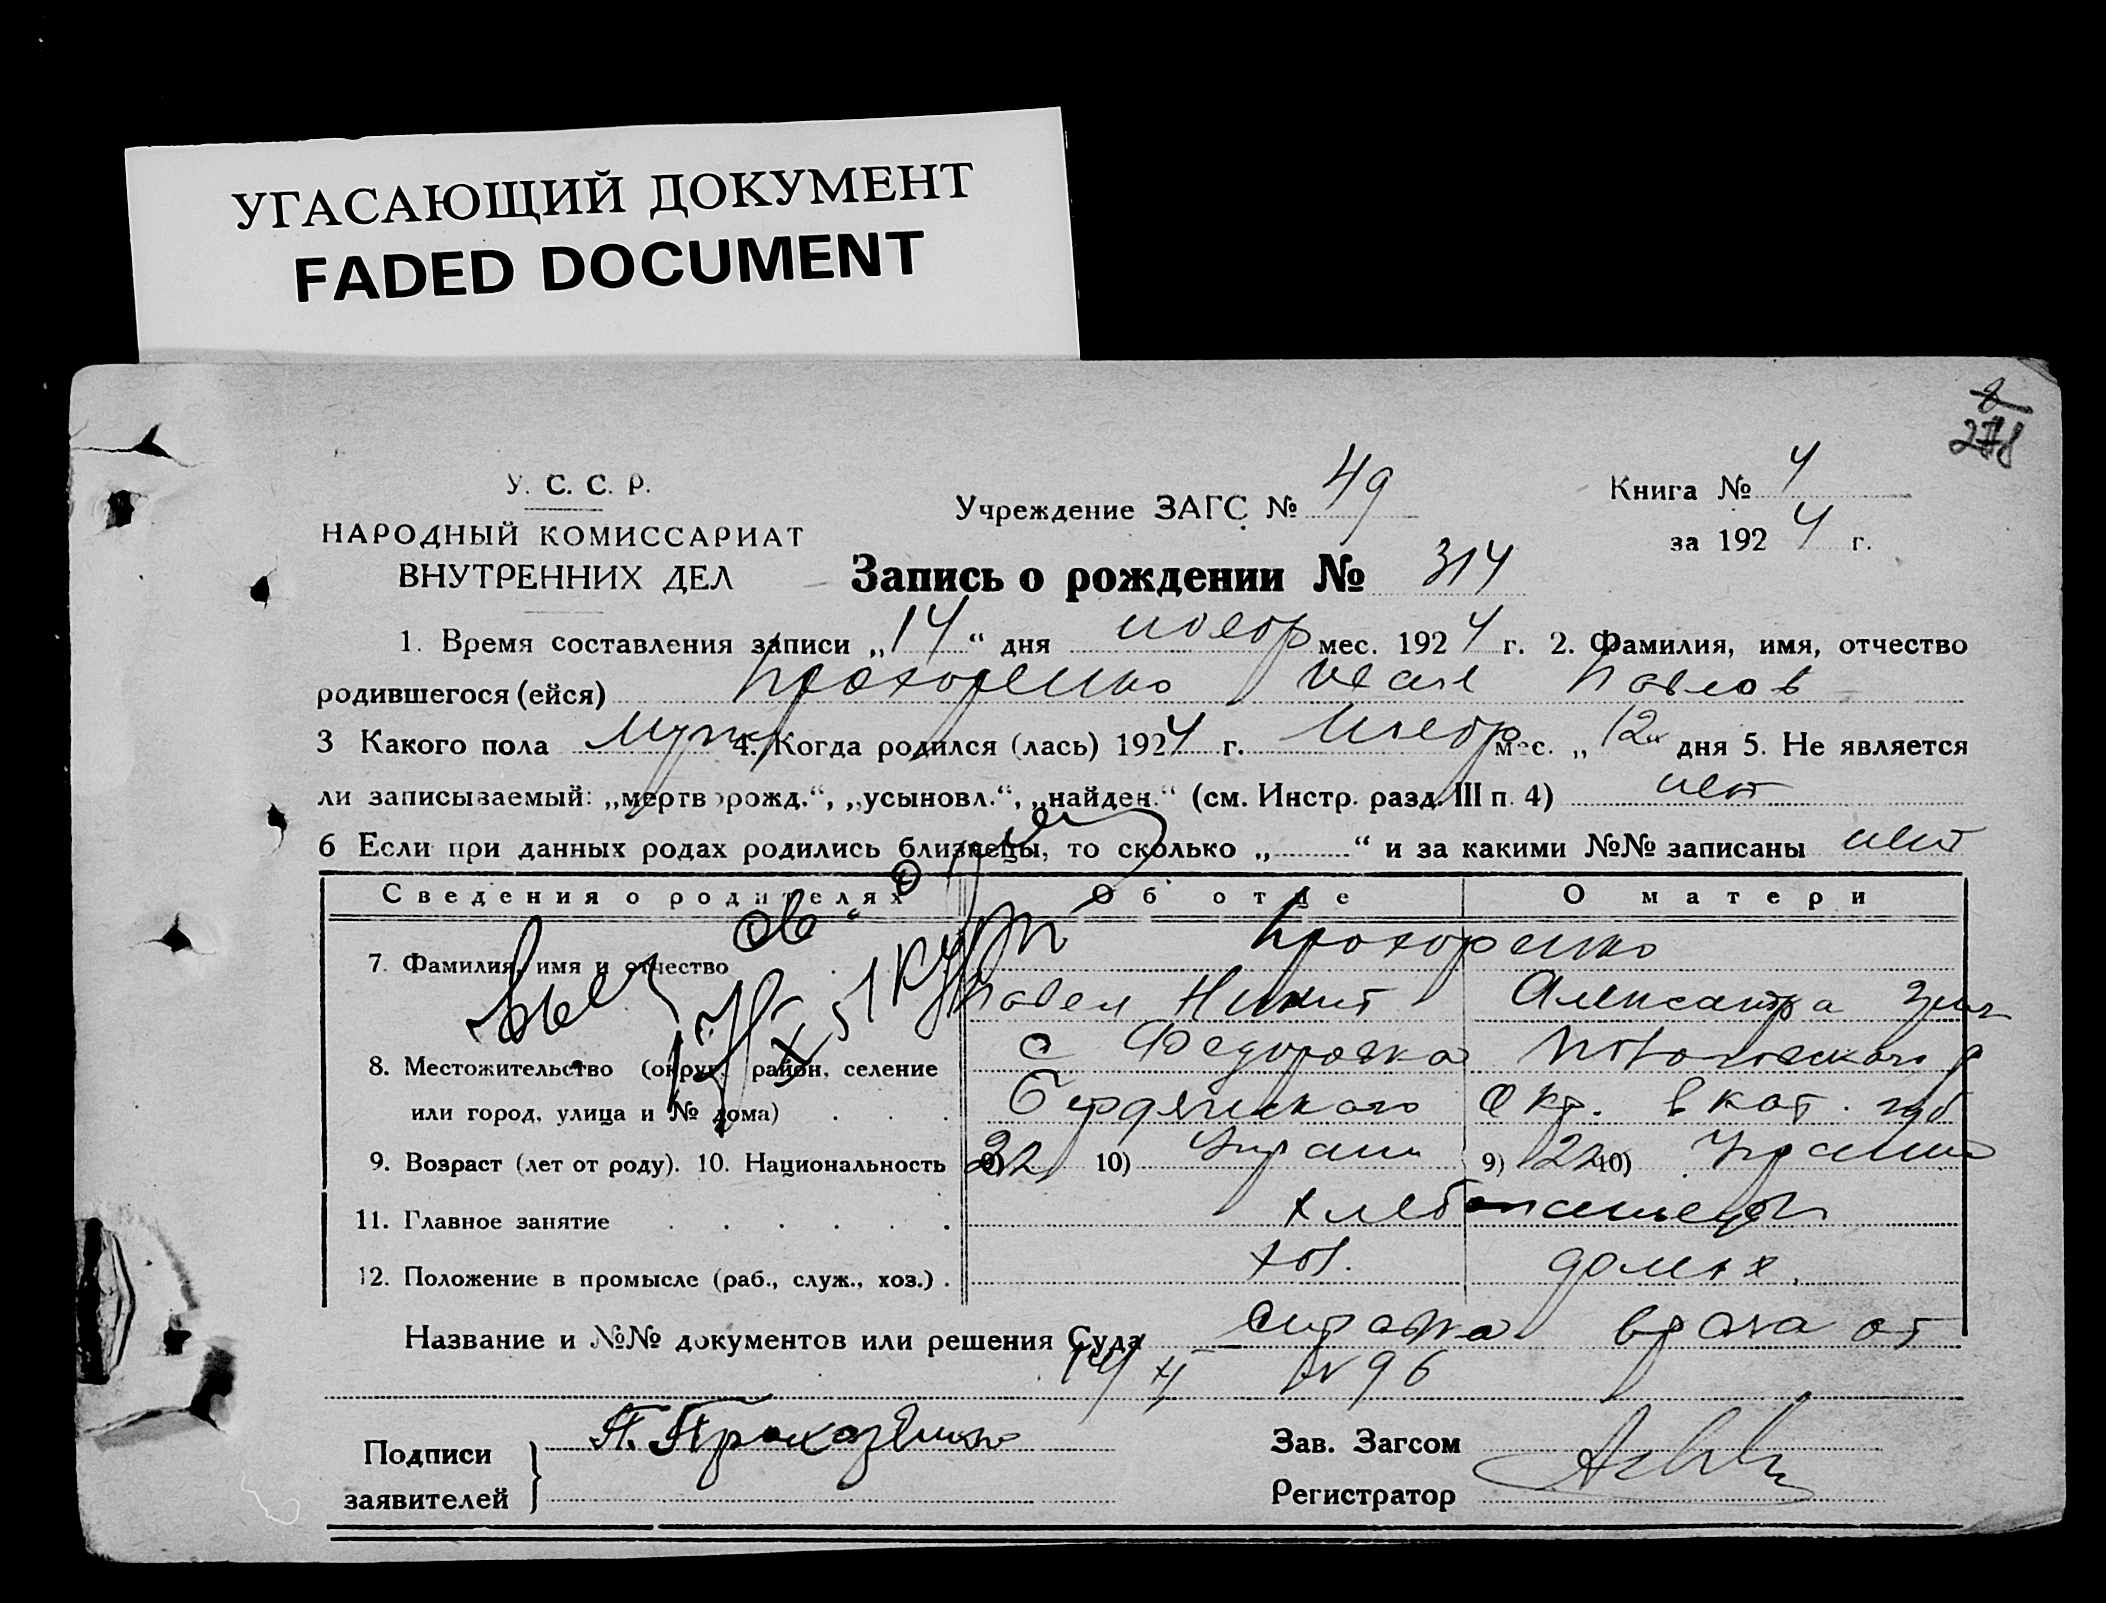 УГАСАЮЩИЙ ДОКУМЕНТ
FADED DOCUMENT
8
278
У. С. С. Р.
НАРОДНЫЙ КОМИССАРИАТ
ВНУТРЕННИХ ДЕЛ
Учреждение ЗАГС № 49
Книга № 4
за 1924 г.
Запись о рождении № 314
1. Время составления записи „14“ дня ноябр мес. 1924 г. 2. Фамилия, имя, отчество
родившегося (ейся) Прохоренко Иван Павлов
3 Какого пола муж 4. Когда родился (лась) 1924 г. ноябр мес. „12“ дня 5. Не является
ли записываемый: „мертворожд.“, „усыновл.“, „найден.“ (см. Инстр. разд. III п. 4) нет
6 Если при данных родах родились близнецы, то сколько „ “ и за какими №№ записаны нет
Сведения о родителях Об отце О матери
7. Фамилия, имя и отчество Прохоренко
Павел Никит Александра
8. Местожительство (округ, район, селение с Федоровка
или город, улица и № дома) Бердянского Окр. Екат. губ
9. Возраст (лет от роду). 10. Национальность 9) 22 10) Украин 9) 22 10) Украин
11. Главное занятие хлебопашество
12. Положение в промысле (раб., служ., хоз.) хоз. домох.
Название и №№ документов или решения Суда справка врача от
14/XI № 96
Подписи
заявителей П. Прохоренко
Зав. Загсом
Регистратор